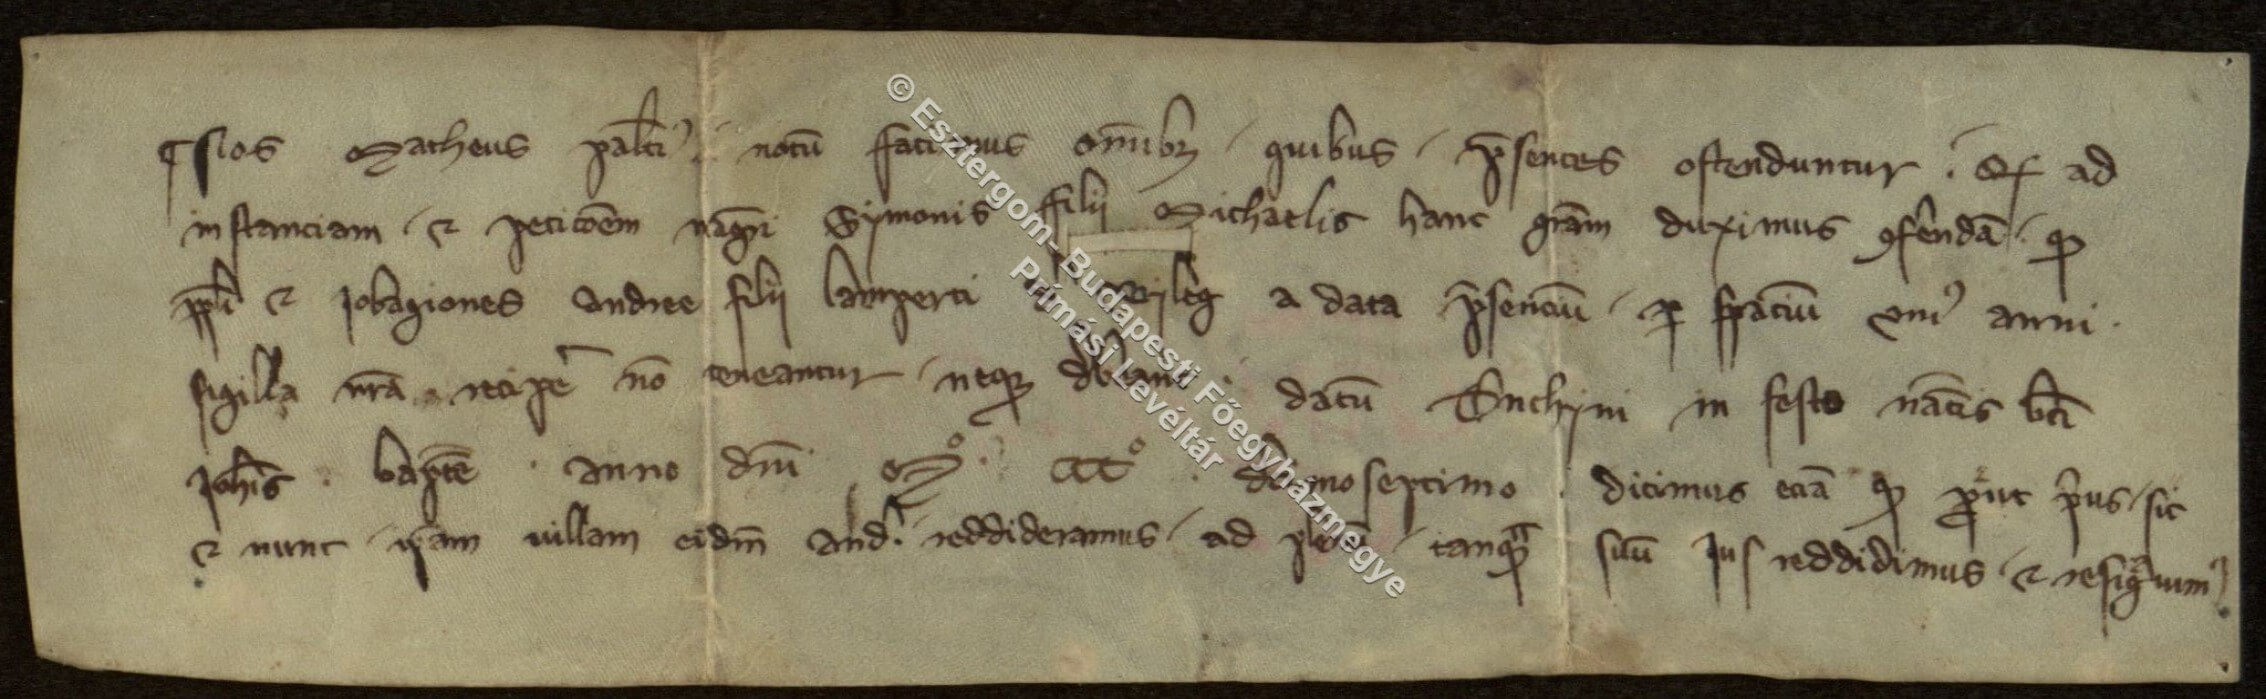 Nos Matheus pal(ati)n(us) notu(m) facimus om(n)ib(us) quibus p(re)sentes ostenduntur · Q(uod) ad
instanciam et petic(i)o(n)em mag(ist)ri Symonis filij Michaelis hanc gr(aci)am duximus (con)fe(re)nda(m) q(uod)
p(o)p(u)li et Jobagiones Andree filij Lamperti a data p(re)senciu(m) p(er) spaciu(m) vni(us) anni
sigilla n(ost)ra recip(er)e no(n) teneantur neq(ue) debeant datu(m) in festo na(tivita)tis b(ea)ti
Joh(ann)is bap(tis)te anno d(omi)ni Mo CCCo decimoseptimo dicimus ecia(m) q(uod) p(ro)ut p(ri)us sic
et nunc ip(s)am villam eid(e)m And(ree) reddideramus ad ple(n)u(m) tanq(ua)m suu(m) Jus reddidimus et resig(na)uim(us)
© Esztergom-Budapesti Főegyházmegye
Prímási Levéltár